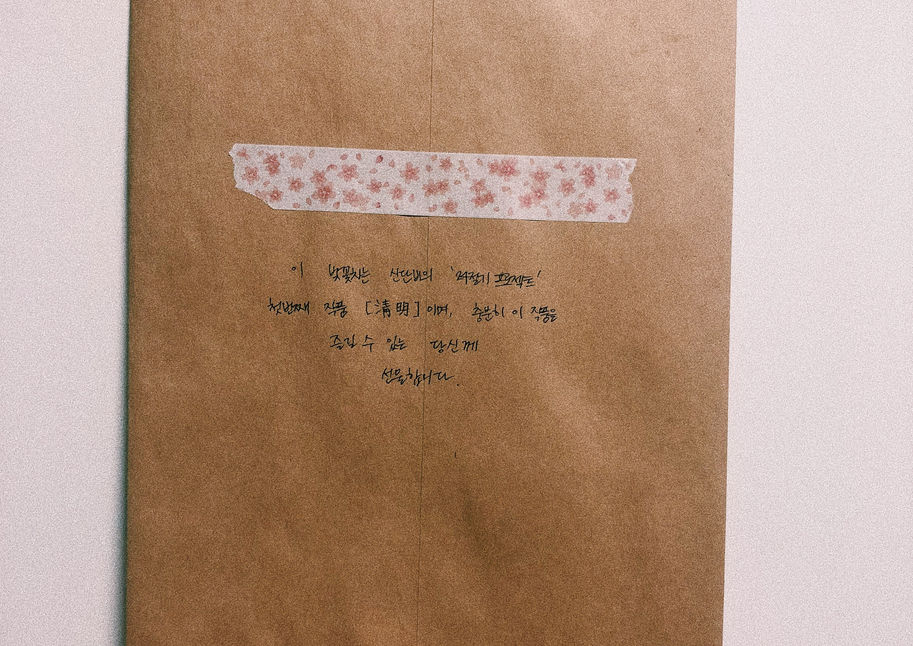 이 벚꽃차는 산단비의 '24절기 프로젝트'
첫번째 작품 [淸明]이며, 충분히 이 작품을
즐길 수 있는 당신께
선물합니다.